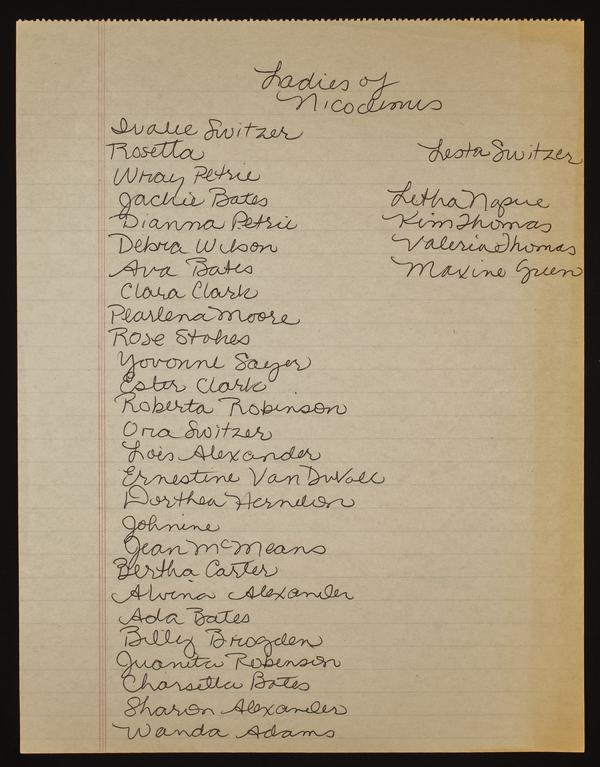 Ladies of
Nicodemus
Ivalee Switzer
Rosetta
Wray Petrie
Jackie Bates
Dianna Petrie
Debra Wilson
Ava Bates
Clara Clark
Pearlena Moore
Rose Stokes
Yovonne Sayer
Ester Clark
Roberta Robinson
Ora Switzer
Lois Alexander
Ernestine VanDuvall
Dorthea Herndon
Johnine
Jean McMeans
Bertha Carter
Alvina Alexander
Ada Bates
Billy Brogden
Juanita Robinson
Charsetta Bates
Sharon Alexander
Wanda Adams
Lesta Switzer
Letha Napue
Kim Thomas
Valeria Thomas
Maxine Green